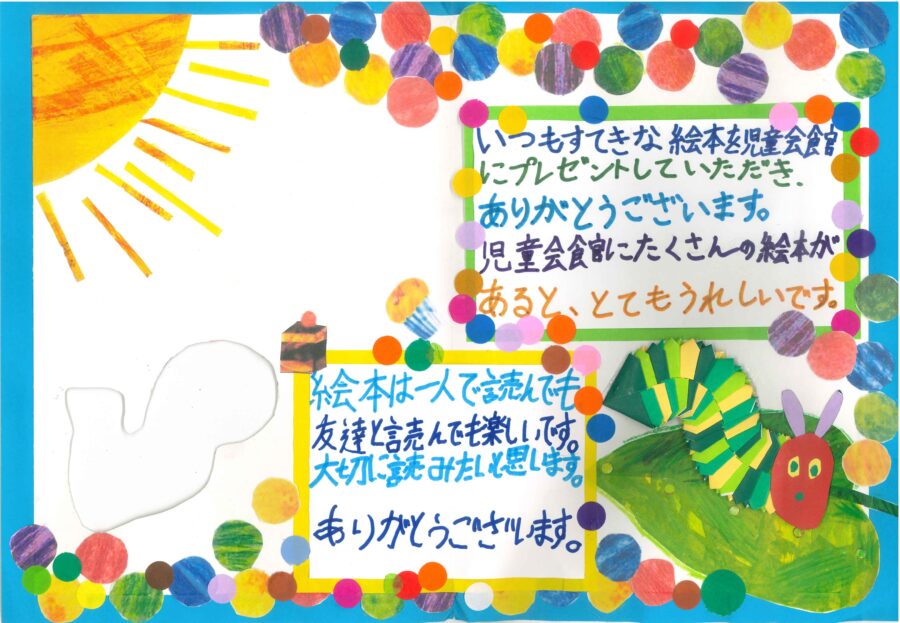 いつもすてきな絵本を児童会食官
にプレゼントしていただき、
ありがとうございます。
児童会食官にたくさんの絵本が
あると、とてもうれしいです。
絵本は一人で読んでも
友達と読んでも楽しいです。
大切に読みたいと思します。
ありがとうございます。